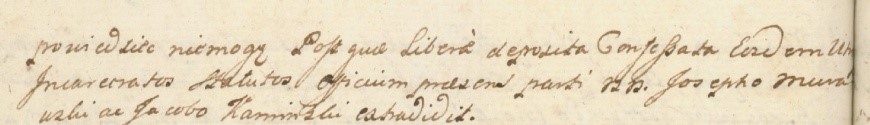 powiedzieć niemogę Post quæ liberè deposita Confessata Eosdem Ut
Incarceratos Statutos officium præsens parti NN. Josepho Mura
uski ac Jacobo Kamiński extradidit.